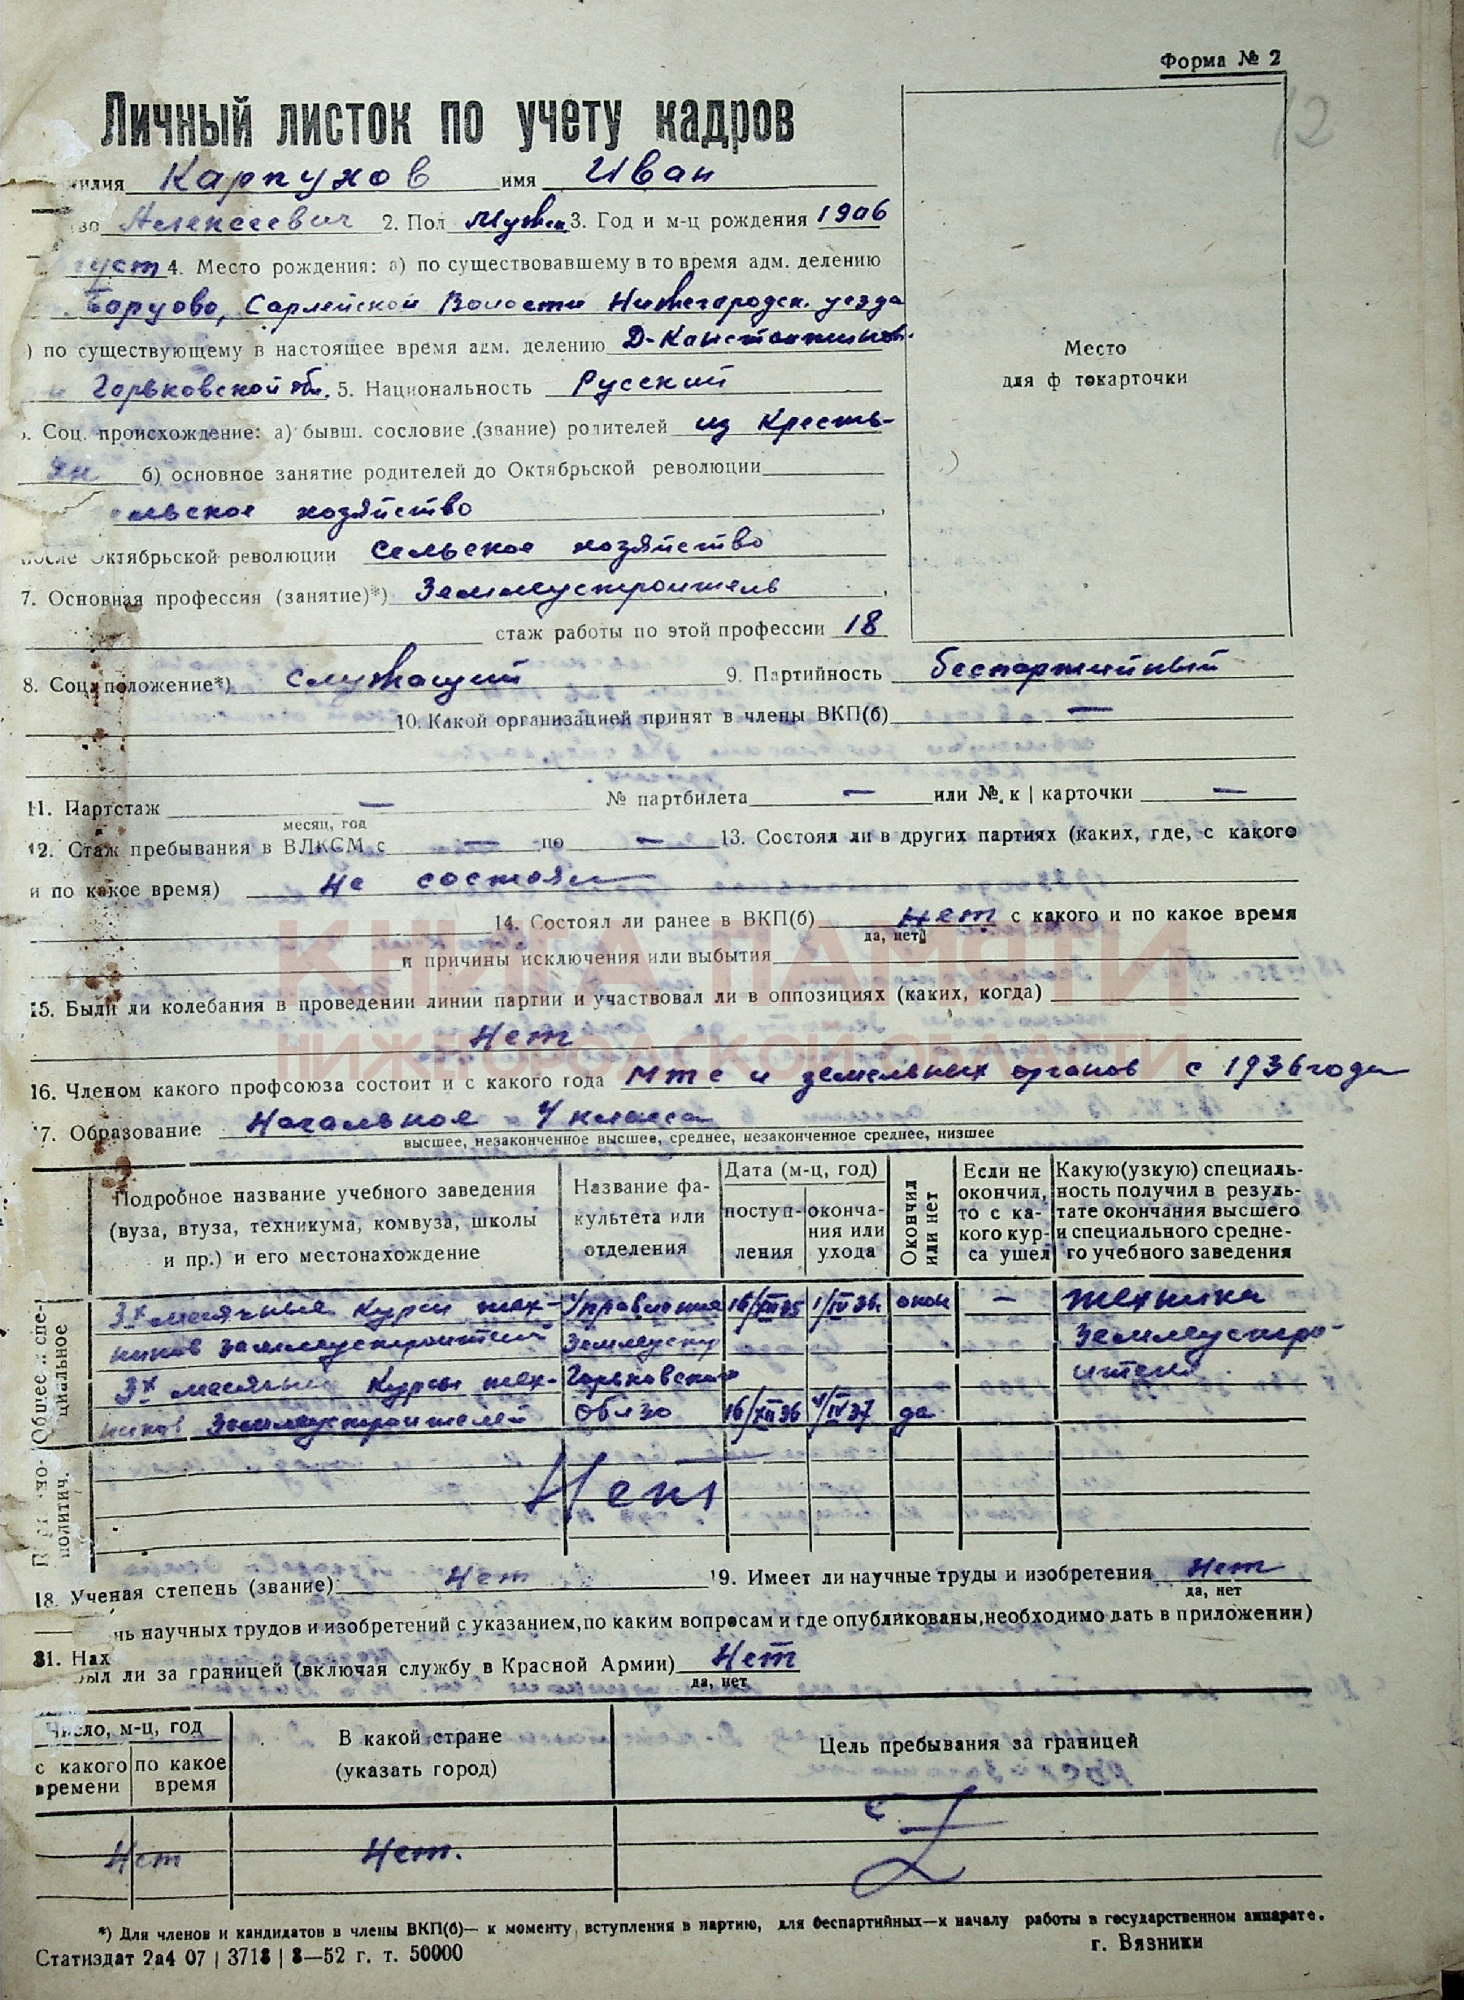 Форма № 2
12
Личный листок по учету кадров
илия Карпухов имя Иван
во Алексеевич 2. Пол Мужск 3. Год и м-ц рождения 1906
густ 4. Место рождения: а) по существовавшему в то время адм. делению
Борцово, Сарлейской Волости Нижегородск. уезда
) по существующему в настоящее время адм. делению Д-Константинов.
Горьковской обл. 5. Национальность Русский
Место
для ф токарточки
. Соц. происхождение: а) бывш. сословие (звание) родителей из Кресть-
ян б) основное занятие родителей до Октябрьской революции
ельское хозяйство
после Октябрьской революции Сельское хозяйство
7. Основная профессия (занятие)*) Землеустроитель
стаж работы по этой профессии 18
8. Соц. положение*) Служащий 9. Партийность беспартийный
10. Какой организацией принят в члены ВКП(б) —
11. Партстаж — № партбилета — или № к | карточки —
месяц, год
12. Стаж пребывания в ВЛКСМ с — по — 13. Состоял ли в других партиях (каких, где, с какого
и по какое время) Не состоял
14. Состоял ли ранее в ВКП(б) нет с какого и по какое время
да, нет
КНИГА ПАМЯТИ
и причины исключения или выбытия
15. Были ли колебания в проведении линии партии и участвовал ли в оппозициях (каких, когда)
Нет
НИЖЕГОРОДСКОЙ ОБЛАСТИ
16. Членом какого профсоюза состоит и с какого года Мтс и земельных органов с 1936 года
7. Образование Начальное 4 класса
высшее, незаконченное высшее, среднее, незаконченное среднее, низшее
Подробное название учебного заведения (вуза, втуза, техникума, комвуза, школы и пр.) и его местонахождение
Название факультета или отделения
Дата (м-ц, год)
поступ-
ления
оконча-
ния или
ухода
Окончил
или нет
Если не
окончил,
то с ка-
кого кур-
са ушел
Какую (узкую) специаль-
ность получил в резуль-
тате окончания высшего
и специального средне-
го учебного заведения
Общее и спе-
циальное
3х месячные Курсы тех- Управления 16/XII 35 1/IV 36. окон — техника
ников землеустроителей Землеустр Землеустро-
3х месячные Курсы тех- Горьковского ителя
ников Землеустроителей Облзо 16/XII 36 1/IV 37 да
политич.
Нет
18. Ученая степень (звание) Нет 19. Имеет ли научные труды и изобретения Нет
да, нет
нь научных трудов и изобретений с указанием, по каким вопросам и где опубликованы, необходимо дать в приложении)
21. Нах
был ли за границей (включая службу в Красной Армии) Нет
да, нет
Число, м-ц, год
с какого
времени
по какое
время
В какой стране
(указать город)
Цель пребывания за границей
Нет Нет.
*) Для членов и кандидатов в члены ВКП(б)— к моменту вступления в партию, для беспартийных—к началу работы в государственном аппарате.
Статиздат 2а4 07 | 3718 | 8—52 г. т. 50000 г. Вязники